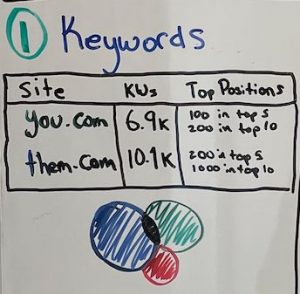 1 Keywords
Site KWs Top Positions
you.com 6.9K 100 in top 5
200 in top 10
them.com 10.1K 200 in top 5
1000 in top 10